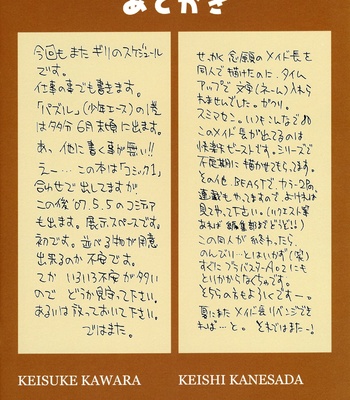 あとがき
今回もまたギリのスケジュール
です。
仕事の事でも書きます。
「パズル」(少年エース)の1巻
は多分6月末頃に出ます。
あ、他に書く事が無い!!
えー…この本は「コミック1」
合わせで出してますが
この後'07.5.5のコミティア
も出ます。展示スペースです。
初のです。並べる物が用意
出来るのか不安です。
てか いろいろ不安がタタい
ので どうか見守って下さい。
あるいは放っておいて下さい。
ではまた。
KEISUKE KAWARA
せっかく念願のメイド長を
同人で描けたのに、タイム
アップで文字(ネーム)入れ
られませんでした。がっつり。
スミマセン。いつもこんなで
このメイド長が出てるのは
快楽天ビーストです。シリーズで
不定期に描かせてもらってます。
その他、BEASTで、カラー2Pの
連載もやってますので、よければ
見てやって下さい。(リクエスト等
あれば編集部までどうぞ!)
この同人が終わったら、
のんびり…とはいかず(笑)
すぐにブラバスターAo2にも
とりかからなくちゃです。
そちらの方もようしくですー。
夏にまたメイド長リベンジでき
れば…と。それではまたー!
KEISHI KANESADA